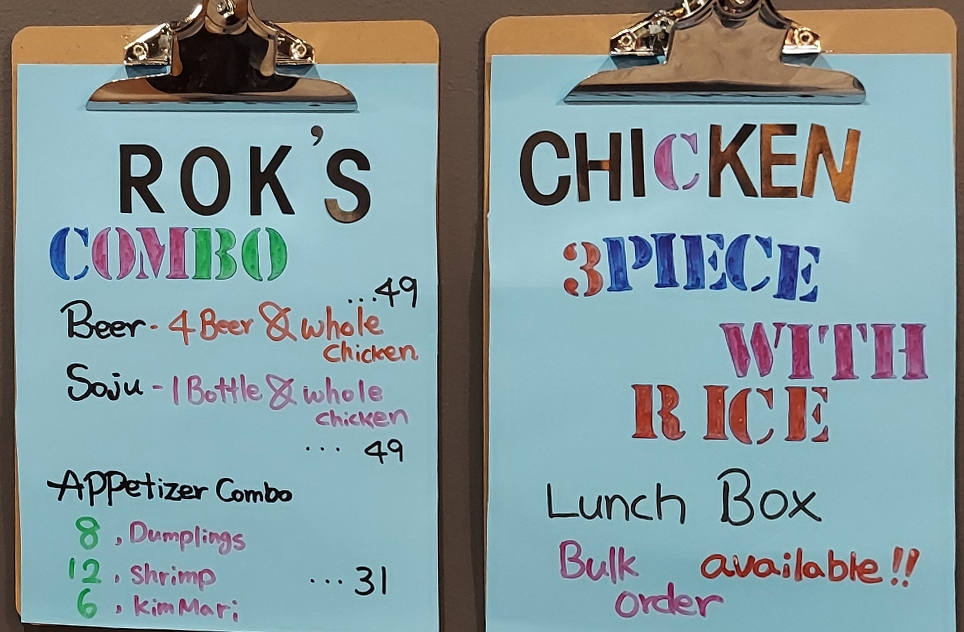 ROK'S
COMBO
...49
Beer - 4 Beer & whole
chicken
Soju - 1 Bottle & whole
chicken
... 49
Appetizer Combo
8, Dumplings
12, shrimp ...31
6, kimMari
CHICKEN
3PIECE
WITH
RICE
Lunch Box
Bulk available!!
order